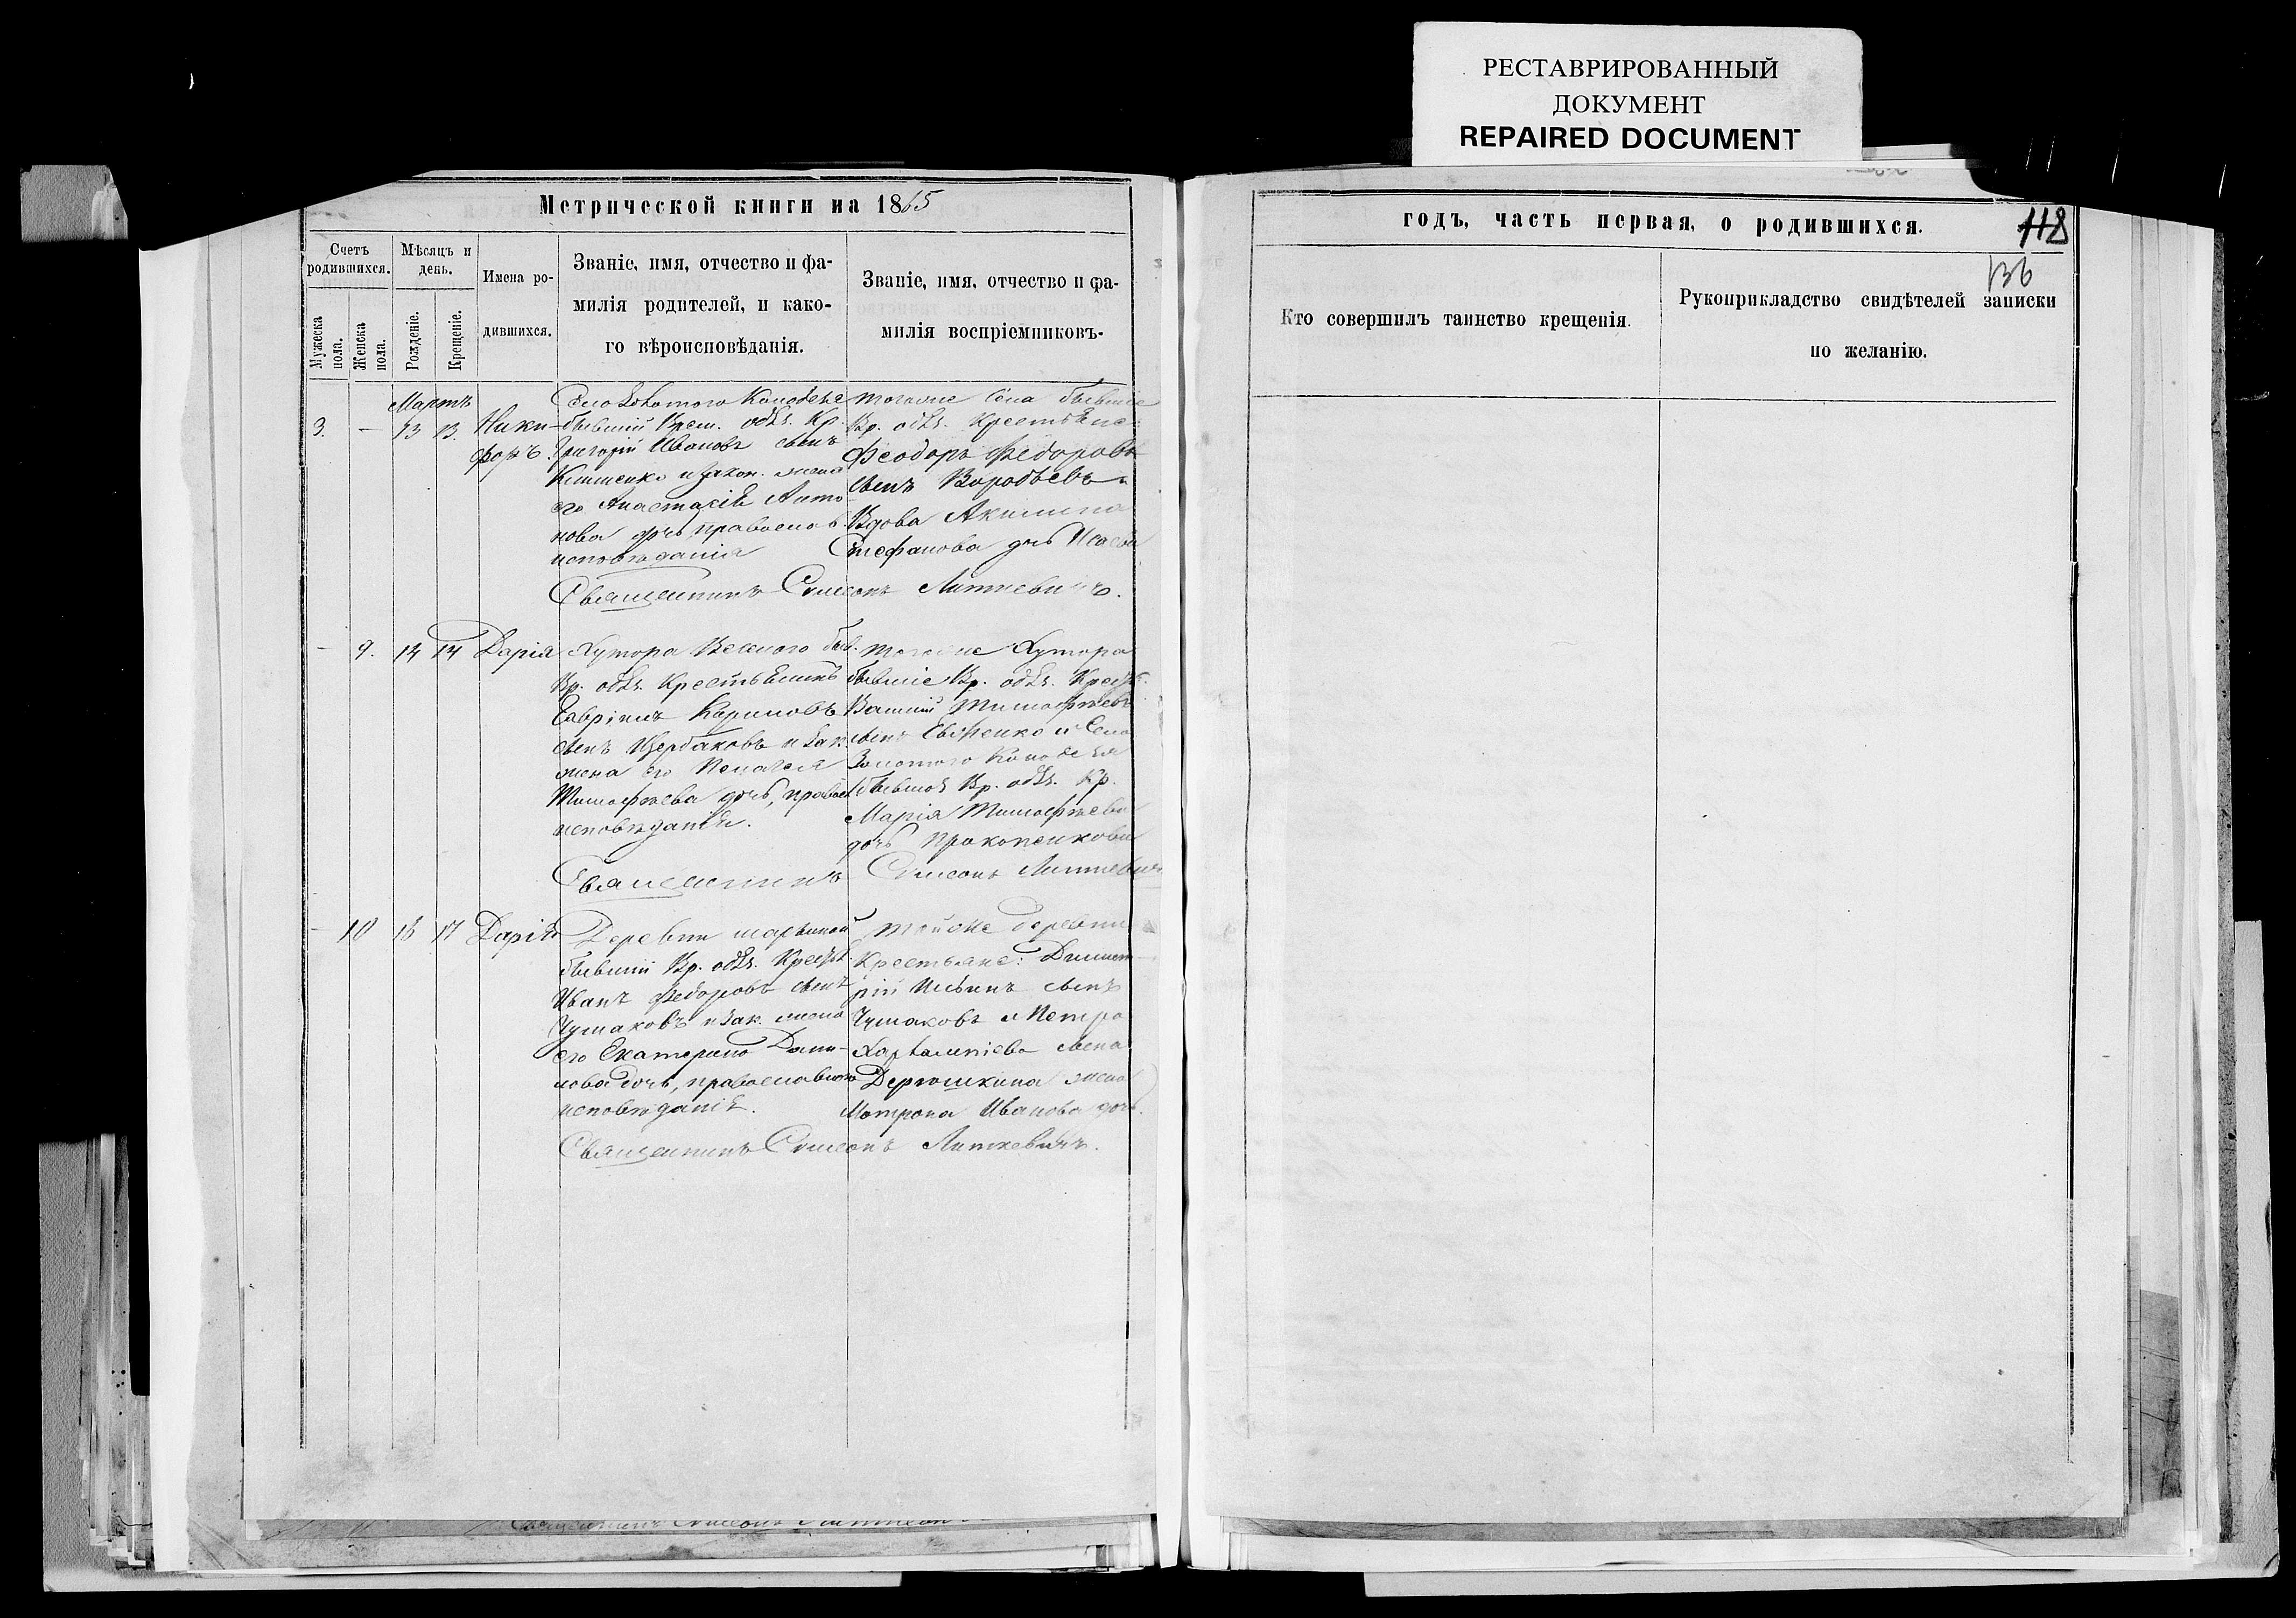 РЕСТАВРИРОВАННЫЙ
ДОКУМЕНТ
REPAIRED DOCUMENT
Метрической книги на 1865
Счетъ родившихся.
Мужеска пола.
Женска пола.
Мѣсяцъ и день.
Рожденіе.
Крещеніе.
Имена ро-
дившихся.
Званіе, имя, отчество и фа-
милія родителей, и како-
го вѣроисповѣданія.
Званіе, имя, отчество и фа-
милія воспріемниковъ.
Мартъ
3. — 13 13. Ники-
форъ.
Село Золотого Колодезя
бывшій Врем. обяз. Кр.
Григорій Ивановъ сынъ
и закон. жена
его Анастасія Анто
нова дочь, православ.
исповѣданія
тогоже села бывшіе
Вр. обяз. Крестьяне:
Феодоръ Федоровъ
сынъ Воробьевъ и
Вдова Акилина
Стефанова дочь
Священникъ Симеонъ Литкевичъ.
— 9. 14 14 Дарія
Хутора Веселого быв.
Вр. обяз. Крестьянинъ
Гавріилъ Карповъ
сынъ Щербаковъ и зак.
жена его Пелагея
Тимофѣева дочь, правосл
исповѣданія.
тогоже Хутора
бывшіе Вр. обяз. Крест.
Василій Тимофѣевъ
сынъ Евтенко и Села
Золотого Колодезя
бывшей Вр. обяз. Кр.
Марія Тимофѣева
дочь Прокопенкова
Священникъ Симеонъ Литкевичъ
— 10 16 17 Дарія
Деревни Марьиной
бывшій Вр. обяз. Крест.
Иванъ Федоровъ сынъ
Чумаковъ и зак. жена
его Екатерина Дани-
лова дочь, православного
исповѣданія.
тойже деревни
Крестьяне: Димит-
рій Ильинъ сынъ
Чумаковъ и Петра
Харлампіева сына
Дерюшкина жена
Матрона Иванова дочь.
Священникъ Симеонъ Литкевичъ.
годъ, часть первая, о родившихся.
118
136
Кто совершилъ таинство крещенія.
Рукоприкладство свидѣтелей записки
по желанію.